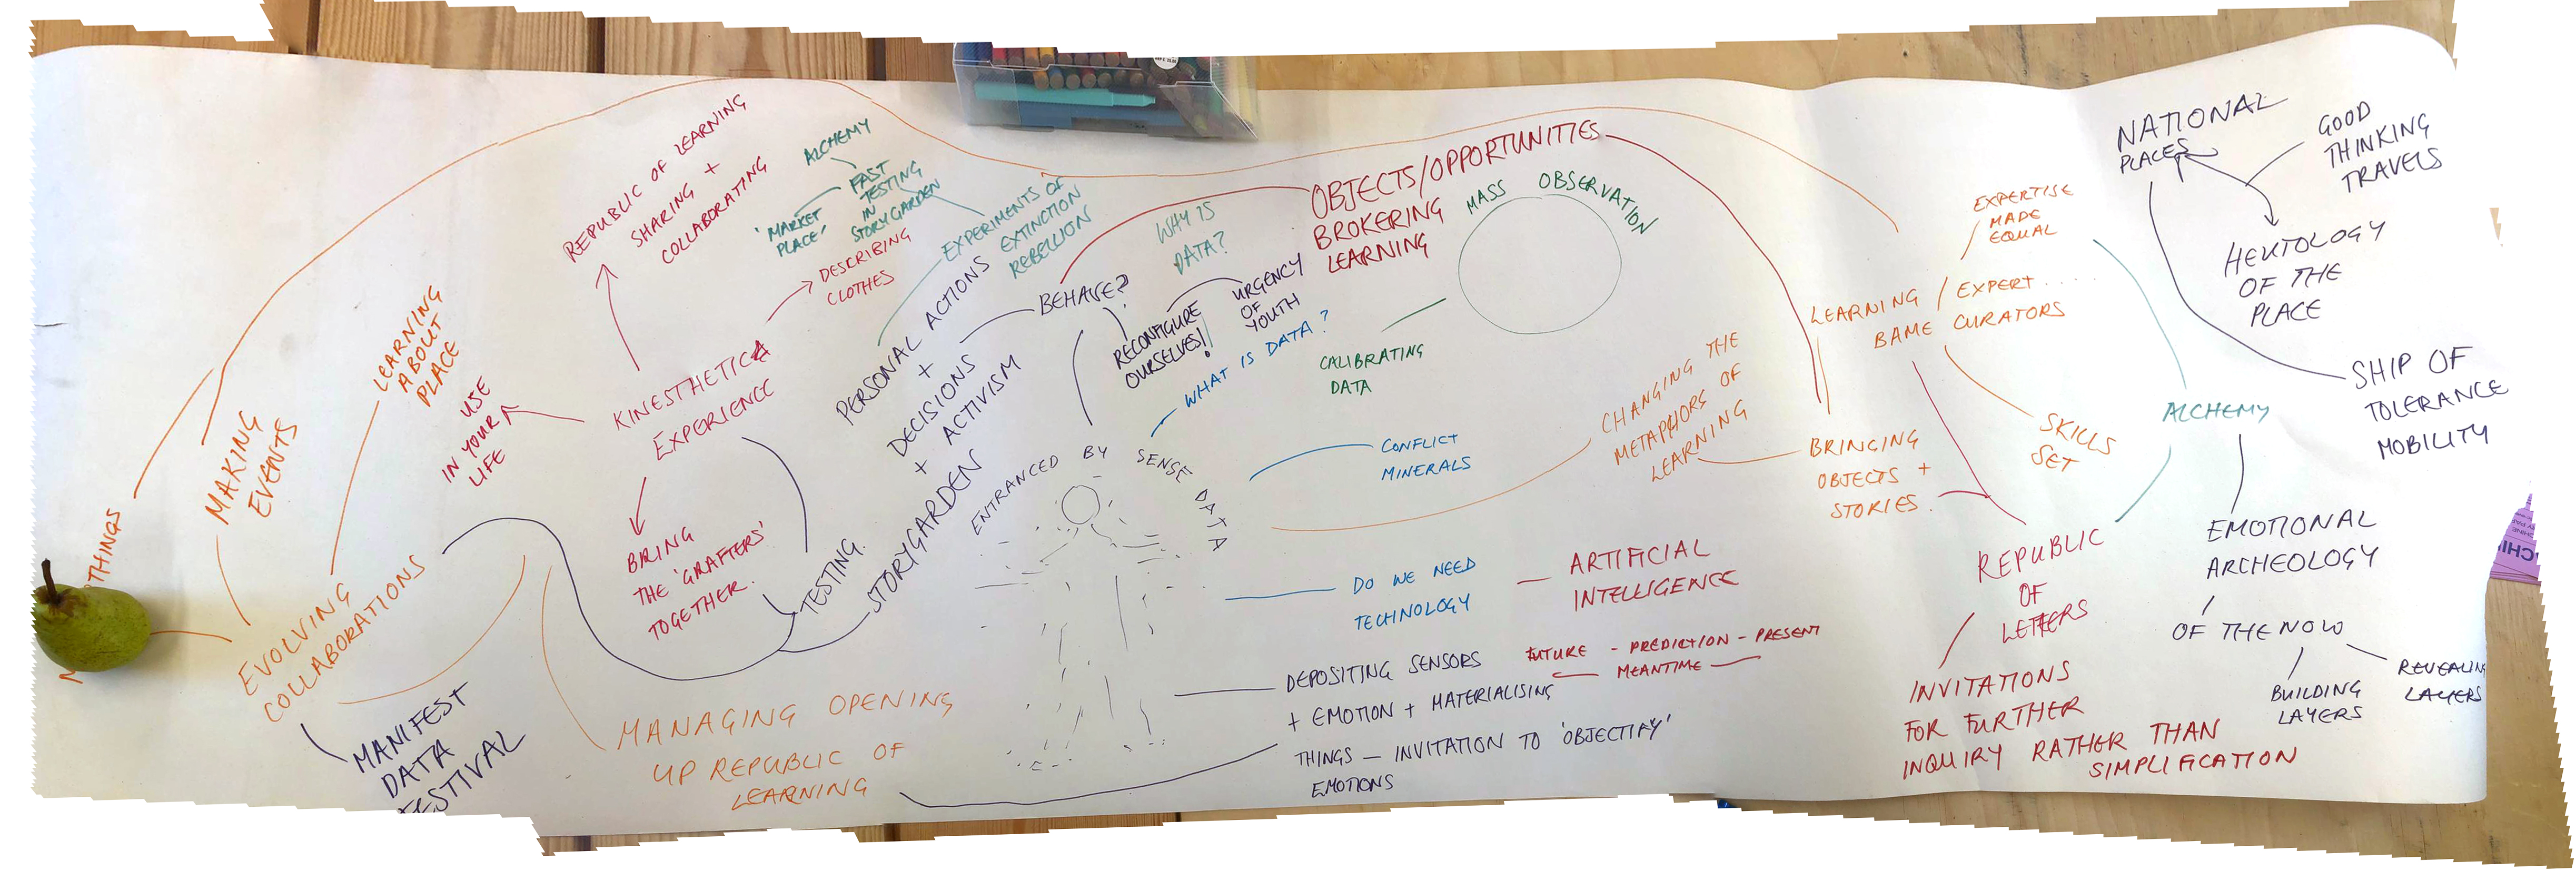 THINGS
MAKING
EVENTS
LEARNING
ABOUT
PLACE
EVOLVING
COLLABORATIONS
MANIFEST
DATA
FESTIVAL
USE
IN YOUR
LIFE
REPUBLIC OF LEARNING
SHARING +
COLLABORATING
KINESTHETICA
EXPERIENCE
BRING
THE 'GRAFTERS'
TOGETHER.
MANAGING OPENING
UP REPUBLIC OF
LEARNING
ALCHEMY
FAST
TESTING
IN
STORYGARDEN
'MARKET
PLACE'
DESCRIBING
CLOTHES
EXPERIMENTS OF
EXTINCTION
REBELLION
PERSONAL ACTIONS
+
DECISIONS
+ ACTIVISM
TESTING.
STORYGARDEN
BEHAVE?
WHY IS
DATA?
RECONFIGURE
OURSELVES!
URGENCY
OF
YOUTH
WHAT IS DATA?
ENTRANCED BY SENSE DATA
OBJECTS/OPPORTUNITIES
BROKERING
LEARNING
MASS OBSERVATION
CALIBRATING
DATA
CONFLICT
MINERALS
CHANGING THE
METAPHORS OF
LEARNING
DO WE NEED
TECHNOLOGY
ARTIFICIAL
INTELLIGENCE
DEPOSITING SENSORS
+ EMOTION + MATERIALISING
THINGS — INVITATION TO 'OBJECTIFY'
EMOTIONS
FUTURE - PREDICTION - PRESENT
MEANTIME
EXPERTISE
MADE
EQUAL
LEARNING / EXPERT....
BAME CURATORS
BRINGING
OBJECTS +
STORIES.
SKILLS
SET
REPUBLIC
OF
LETTERS
INVITATIONS
FOR FURTHER
INQUIRY RATHER THAN
SIMPLIFICATION
NATIONAL
PLACES
GOOD
THINKING
TRAVELS
HEUTOLOGY
OF THE
PLACE
SHIP OF
TOLERANCE
MOBILITY
ALCHEMY
EMOTIONAL
ARCHEOLOGY
OF THE NOW
BUILDING
LAYERS
REVEALING
LAYERS